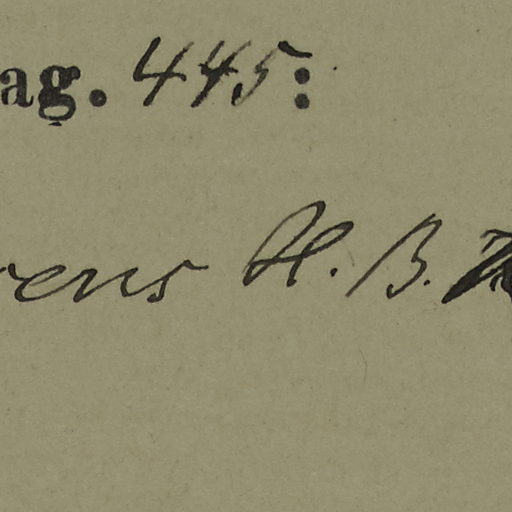 ag. 445:
rens H. B.